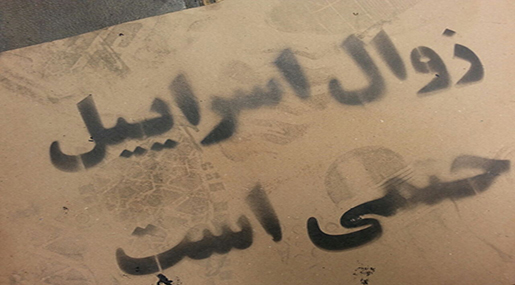 زوال اسراییل
حتمی است